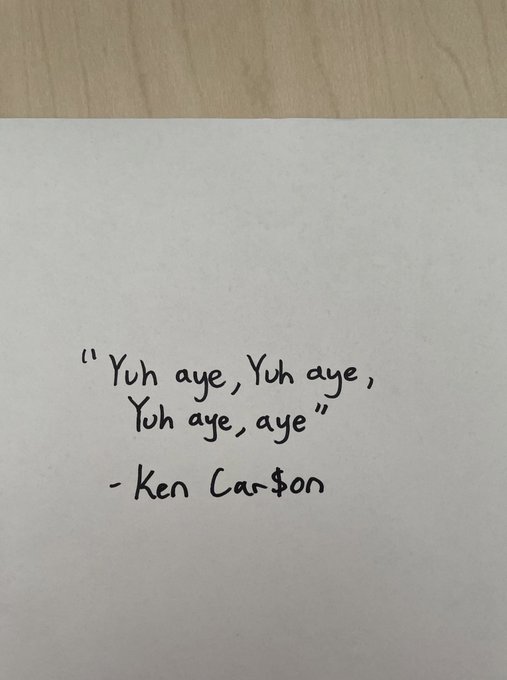 "Yuh aye, Yuh aye,
Yuh aye, aye"
- Ken Car$on